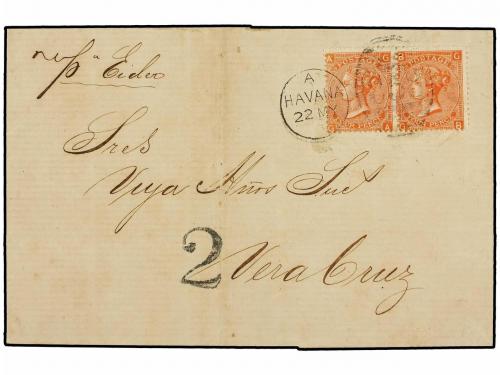 p Eider
A
HAVANA
22 MY
POSTAGE
POSTAGE
Sres
Veya Hños Suc
2
Vera Cruz